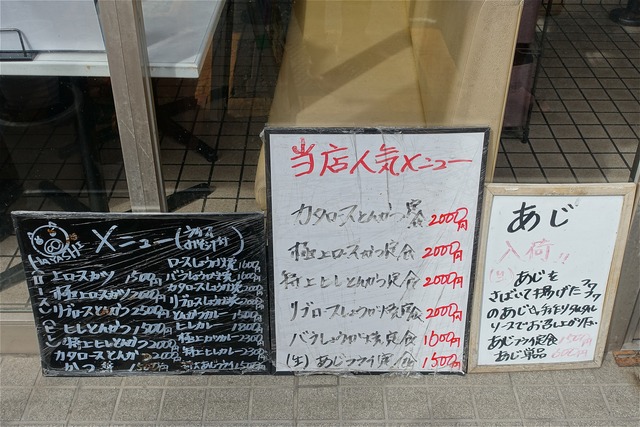 HAYASHI
メニュー
上ロースカツ 1500円
極上ロースカツ 2000円
リブロースとんかつ 2500円
上ヒレとんかつ 1500円
特上ヒレとんかつ 2000円
カタロースとんかつ 2000円
かつ 1500円
ロースしょうが焼
バラしょうが焼
カタロースしょうが焼
リブロースしょうが焼
とんかつカレー
ヒレカレー
極上ロースカレー
特上ヒレカレー
当店人気メニュー
カタロースとんかつ定食 2000円
極上ロースかつ定食 2000円
特上ヒレとんかつ定食 2000円
リブロースしょうが焼定食 2000円
バラしょうが焼定食 1600円
(生)あじフライ定食 1500円
あじ
入荷!!
(生)あじを
さばいて揚げたフワフワ
のあじを手作りタルタル
ソースでお召し上がり下さい。
あじフライ定食 1500円
あじ単品 600円